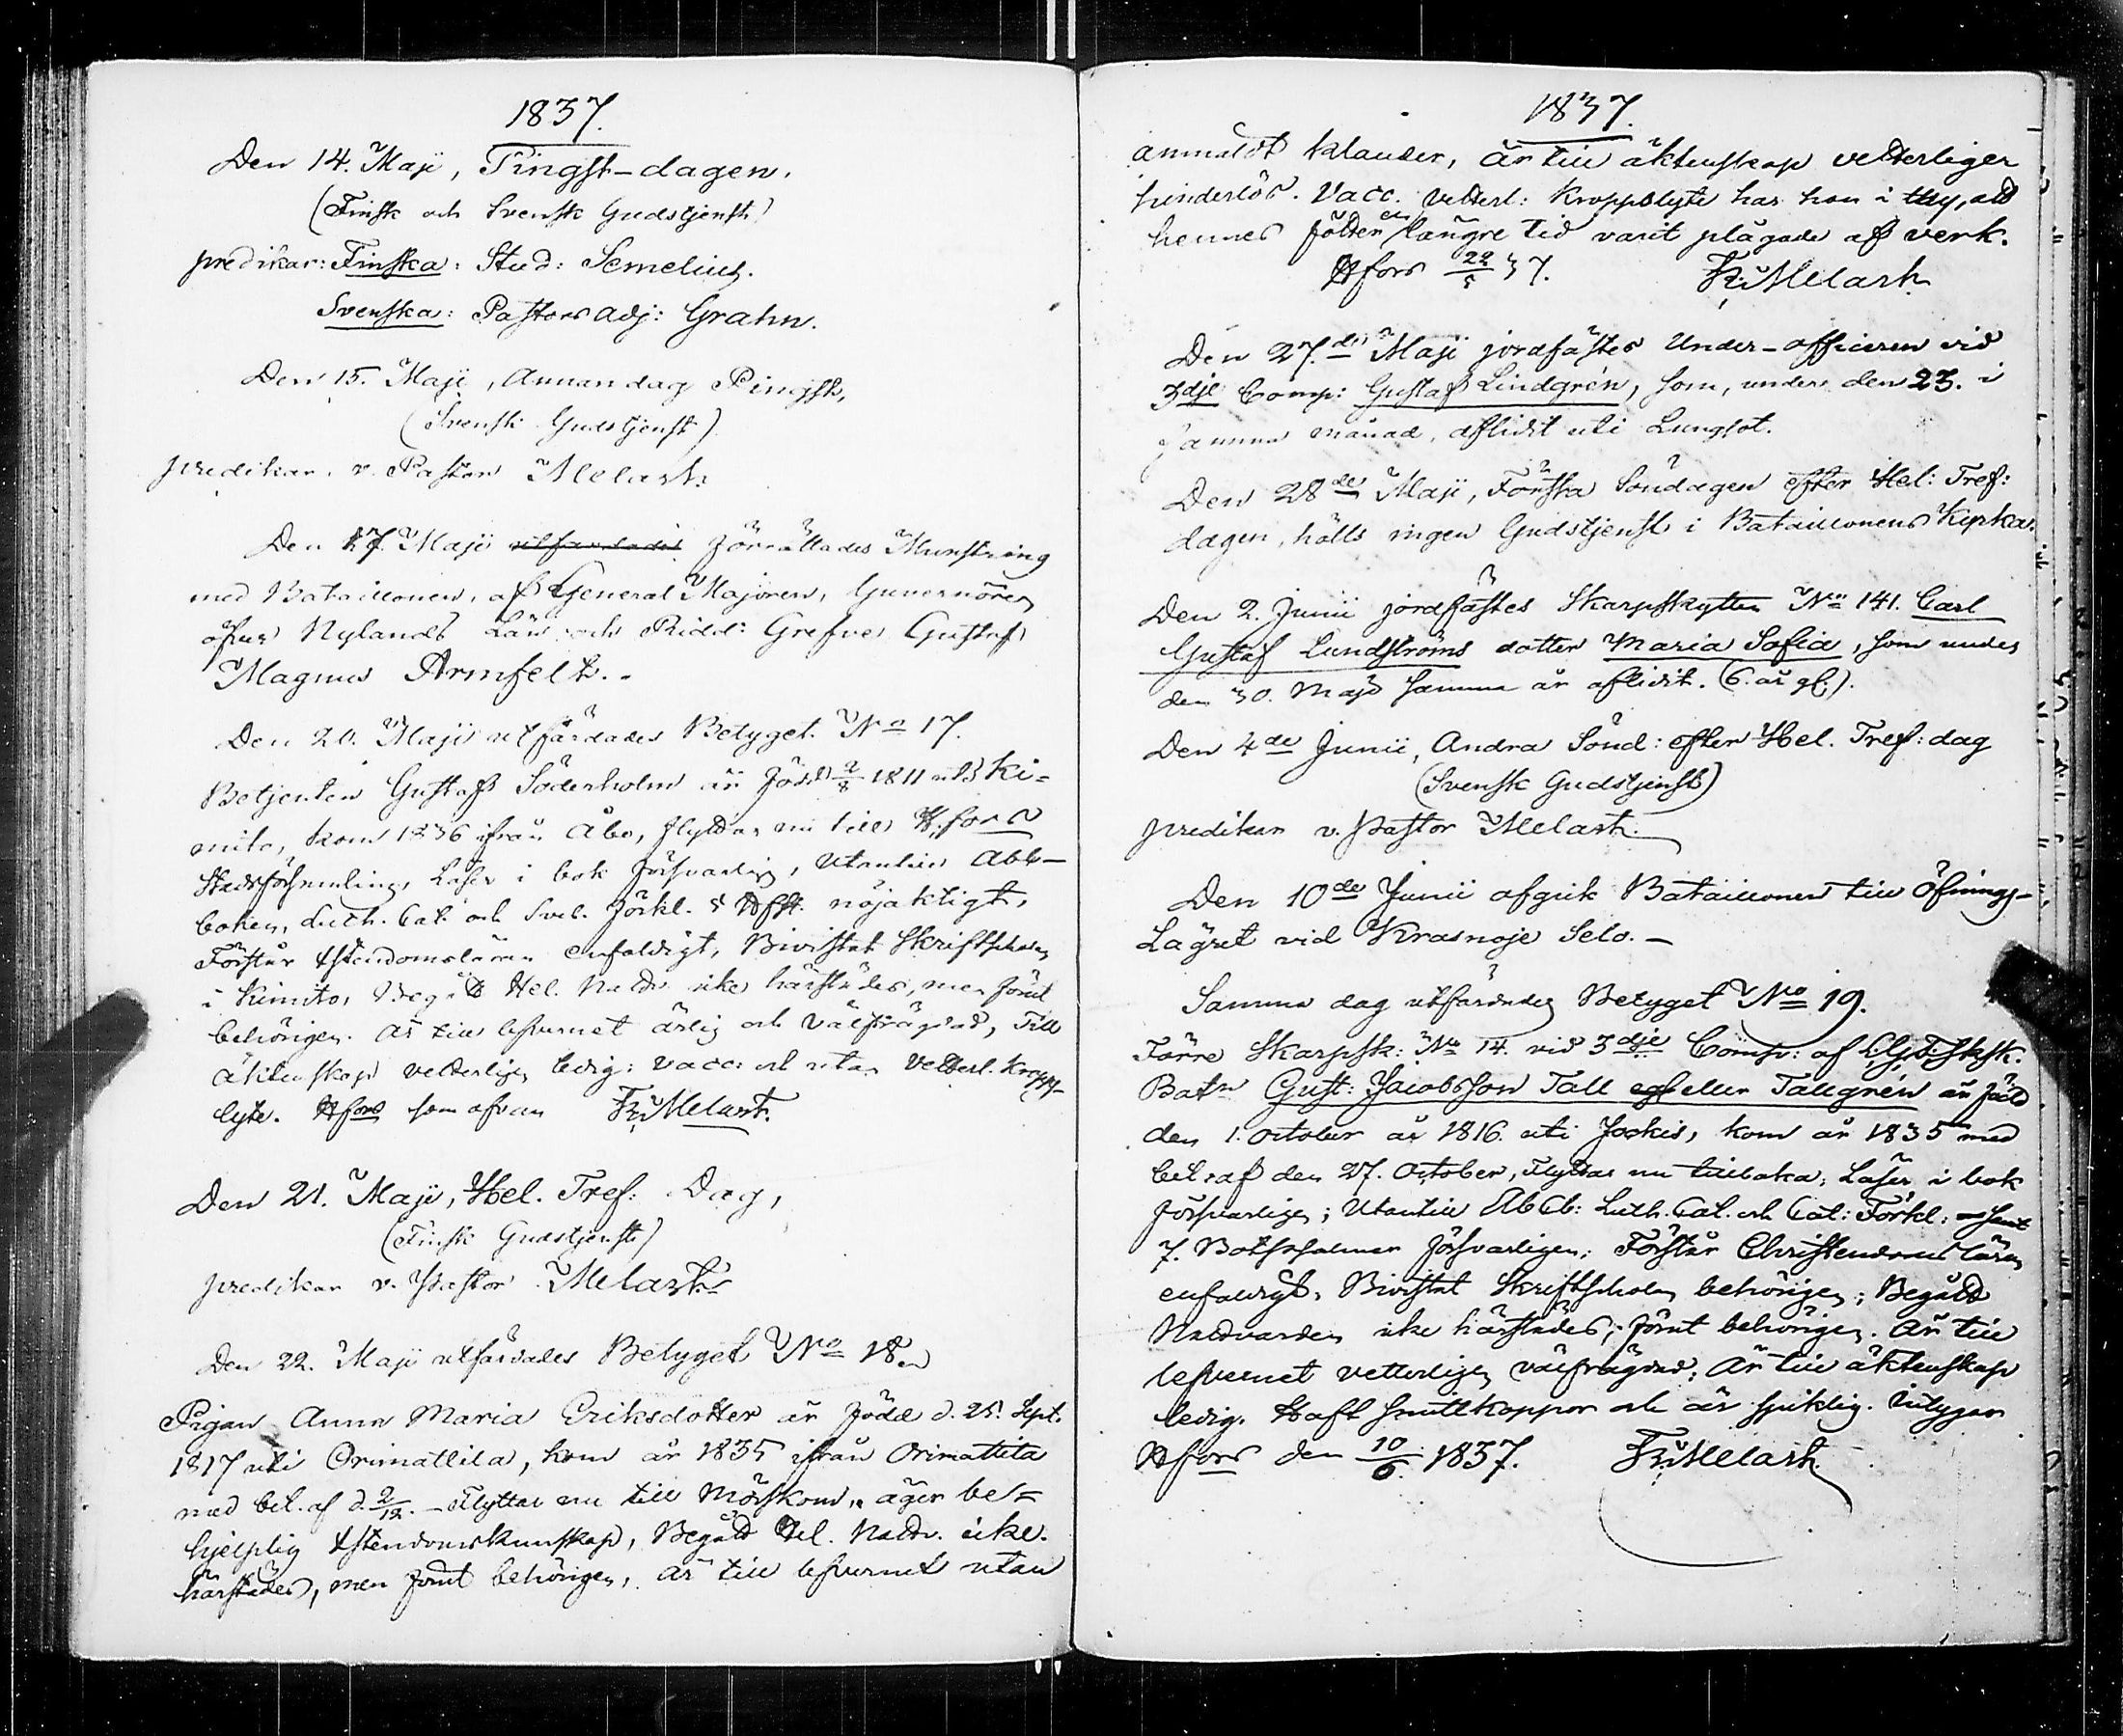 1837.
Den 14. Maji, Pingst-dagen.
(Finsk och Svensk Gudstjenst)
predikar: Finska: Stud: Semelius.
Svenska: Pastors adj: Grahn.
Den 15. Maji, Annandag Pingst,
(Svensk Gudstjenst)
predikar v. Pastor Melart.
Den 17. Maji utfärdades förrättades Munstring
med Bataillonen, af General Majoren, Guvernören
öfver Nylands Län och Ridd: Grefve Gustaf
Magnus Armfelt.
Den 20. Maji utfärdades Betyget No 17.
Betjenten Gustaf Söderholm är född 2/8 1811 uti Ki-
mito, kom 1836 ifrån Åbo, flyttar nu till Hfors
Stadsförsamling, Läser i bok försvarlig, Utantill Abb-
boken, Luth. Cat. och Sveb. Förkl. nöjaktigt,
Förstår Xstendomsläran enfaldigt, Bivistat Skriftskolan
i Kimito, Begått Hel. Nattv. icke härstädes, men förut
behörigen. Är till lefvernet ärlig och välfrägdad, Till
äktenskap vetterligen ledig: vacc: och utan Vetterl. Kropps-
lyte. Hfors som ofvan Fr: Melart.
Den 21. Maji, Hel. Tref: Dag,
(Finsk Gudstjenst)
predikar v. Pastor Melart.
Den 22. Maji utfärdades Betyget No 18.
Pigan Anna Maria Eriksdotter är född d. 25. Sept.
1817 uti Orimattila, kom år 1835 ifrån Orimattila
med bet. af d. 2/12. - Flyttar nu till Mörskom, äger be-
hjelplig Xstendomskunskap, Begått Hel. Nattv. icke
härstädes, men förut behörigen, är till lefvernet utan
1837.
anmäldt klander, är till äktenskap vetterligen
hinderlös. Vacc. Vetterl: Kroppslyte har hon i thy, att
hennes fötter en längre tid varit plågade af verk.
Hfors 22/5 37. Fr: Melart
Den 27.de Maji jordfästes Under-officeren vid
3dje Comp: Gustaf Lindgrén, som, under den 23. i
samma månad, aflidit uti Lungsot.
Den 28de Maji, Första Söndagen efter Hel: Tref:
dagen, hölls ingen Gudstjenst i Bataillonens Kyrka.
Den 2. Junii jordfästes Skarpskytten No 141. Carl
Gustaf Lundströms dotter Maria Sofia, som under
den 30. Maji samma år aflidit. (6. år gl:).
Den 4de Junii, Andra Sönd: efter Hel. Tref: dag
(Svensk Gudstjenst)
predikar v. Pastor Melart.
Den 10de Junii afgick Bataillonen till Öfnings-
Lägret vid Krasnoje Selo. -
Samma dag utfärdades Betyget No 19.
Förre Skarpsk: No 14. vid 3dje Comp: af Sksk.
Batn Gust: Jacobsson Tall eller Tallgrén är född
den 1. october år 1816. uti Jockis, kom år 1835 med
bet: af den 27. October, Flyttar nu tillbaka; Läser i bok
försvarligen; Utantill Abcb: Luth. Cat. och Cat: Förkl: samt
7. Botpsalmer försvarligen; Förstår Christendoms läran
enfaldigt. Bivistat Skriftskolan behörigen; Begått
Nattvarden icke härstädes, förut behörigen. Är till
lefvernet vetterligen välfrägdad; Är till äktenskap
ledig. Haft Smittkoppor och är Intygar
Hfors den 10/6. 1837. Fr: Melart.